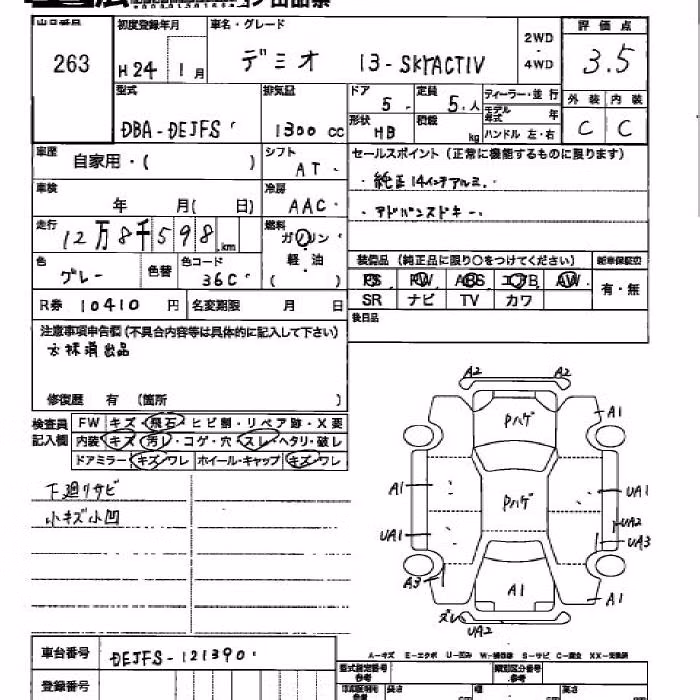 出品票
出品番号 初度登録年月 車名・グレード 2WD ・ 4WD 評価点
263 H24 1月 デミオ 13-SKYACTIV 3.5
型式 排気量 ドア 定員 ディーラー・並行 外装 内装
DBA-DEJFS 1300 cc 5 5 人 モデル年式 年 C C
形状 HB 積載 kg ハンドル 左・右
車歴 自家用・( ) シフト AT セールスポイント (正常に機能するものに限ります)
車検 年 月( 日) 冷房 AAC ・純正14インチアルミ.
・アドバンスドキー.
走行 12万8千598 km 燃料 ガソリン・軽油 ( )
色 グレー 色替 色コード 36C 装備品 (純正品に限り○をつけてください) 新車保証書
PS PW ABS エアB AW 有・無
SR ナビ TV カワ
R券 10410 円 名変期限 月 日 後日品
注意事項申告欄(不具合内容等は具体的に記入して下さい)
修復歴 有 (箇所 )
検査員記入欄 FW キズ・飛石・ヒビ割・リペア跡・X要
内装 キズ・汚レ・コゲ・穴・スレ・ヘタリ・破レ
ドアミラー キズ・ワレ ホイール・キャップ キズ・ワレ
下廻リサビ
小キズ小凹
A2 A2
Pハゲ A1
A1 Pハゲ UA1
UA2
UA1 UA3
A3 A1 A1
ズレ UA2
A-キズ E-エクボ U-凹み W-補修跡 S-サビ C-腐食 XX-交換済
車台番号 DEJFS-121390
登録番号
型式指定番号 参考 類別区分番号 参考
長さ cm 幅 cm 高さ cm